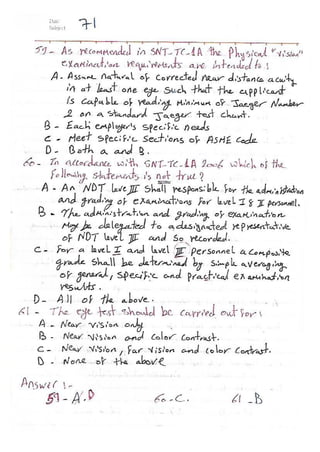 Date
Subject
71
59 - As recommended in SNT-TC-1A the Physical "vision"
examination requirements are intended to :
A - Assure natural of corrected near distance acuity
in at least one eye such that the applicant
is capable of reading minimum of Jaeger Number
2 on a standard Jaeger test chart.
B - Each employer's specific needs
C - Meet specific sections of ASME Code
D - Both A and B.
60 - In accordance with SNT-TC-1A 2006 which of the
following statements is not true ?
A - An NDT level III shall responsible for the administration
and grading of examinations for level I & II personel.
B - The administration and grading of examination
May be delegated to a designated representative
of NDT level III and so recorded.
C - For a level I and level III personnel a composite
grade shall be determined by simple averaging
of general, specific and practical examination
results.
D - All of the above.
61 - The eye test should be carried out for :
A - Near vision only
B - Near vision and color contrast.
C - Near vision, far vision and color contrast.
D - None of the above
Answer :-
59 - A.D 60 - C. 61 - B